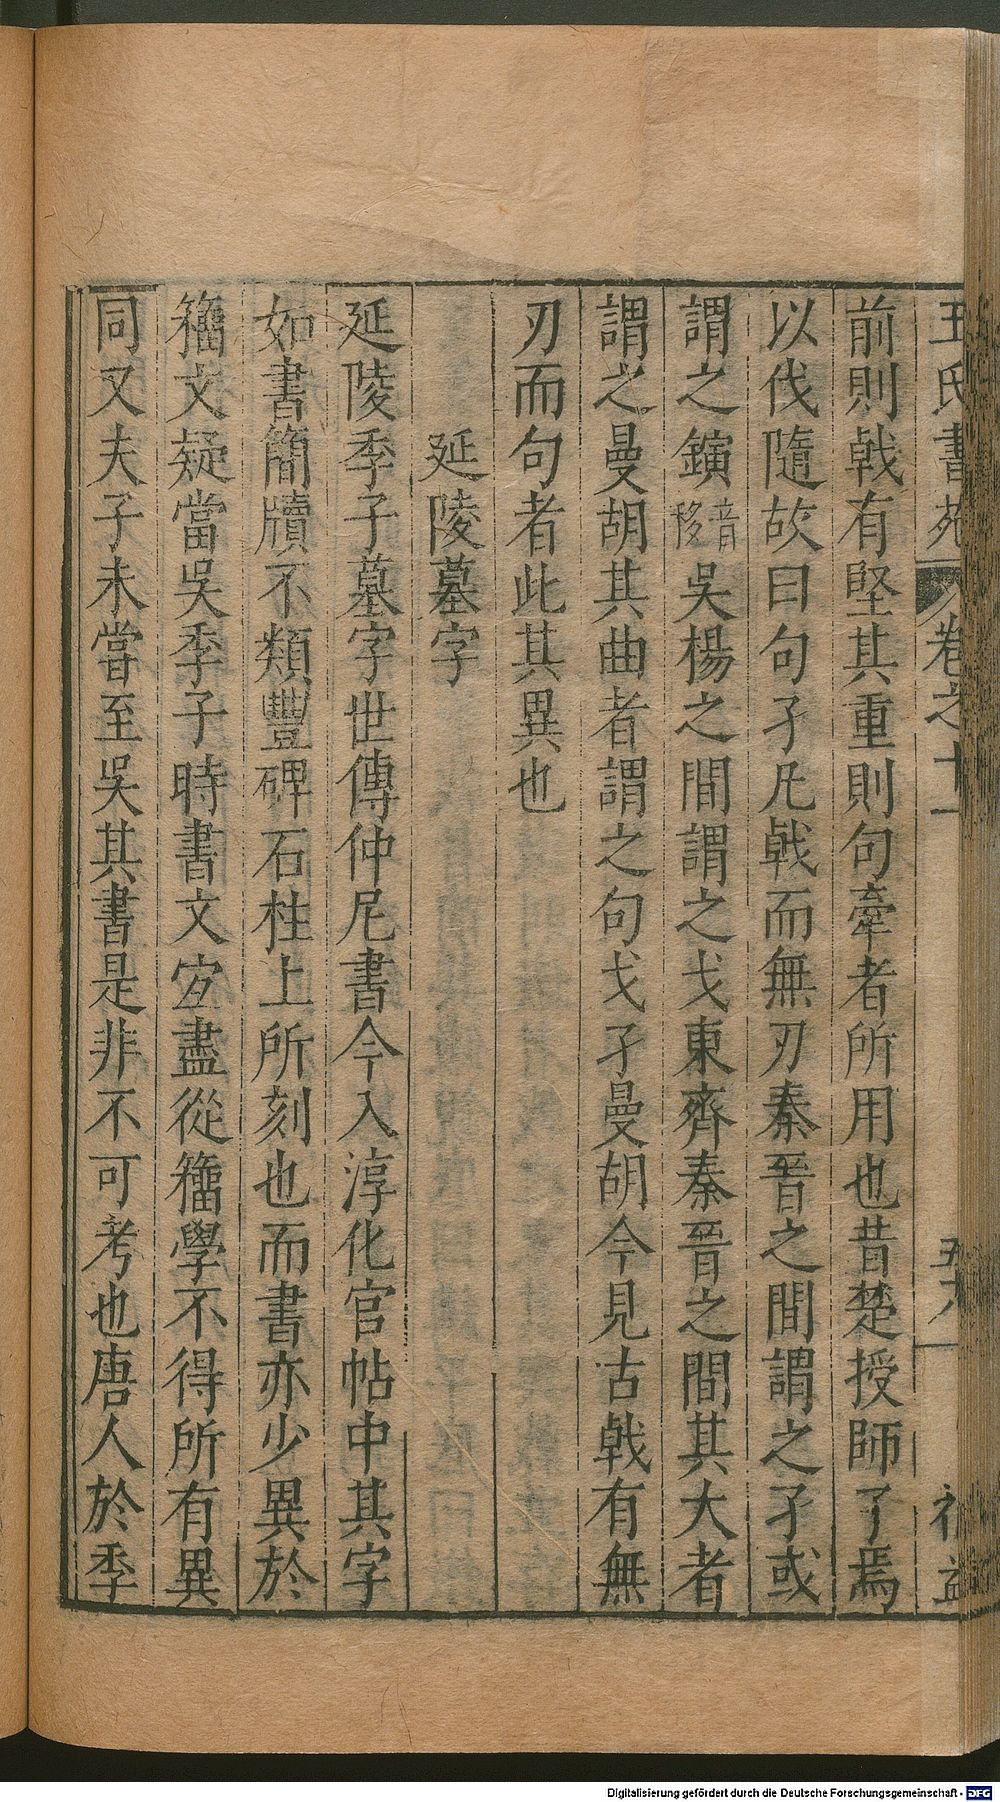 王氏書苑 卷之十一 五八
前則戟有堅其重則句牽者所用也昔楚授師了焉
以伐隨故曰句孑凡戟而無刃秦晉之間謂之孑或
謂之鏔音移吳楊之間謂之戈東齊秦晉之間其大者
謂之曼胡其曲者謂之句戈孑曼胡今見古戟有無
刃而句者此其異也
延陵墓字
延陵季子墓字世傳仲尼書今入淳化官帖中其字
如書簡牘不類豐碑石柱上所刻也而書亦少異於
籀文疑當吳季子時書文宜盡從籀學不得所有異
同又夫子未嘗至吳其書是非不可考也唐人於季
Digitalisierung gefördert durch die Deutsche Forschungsgemeinschaft - DFG